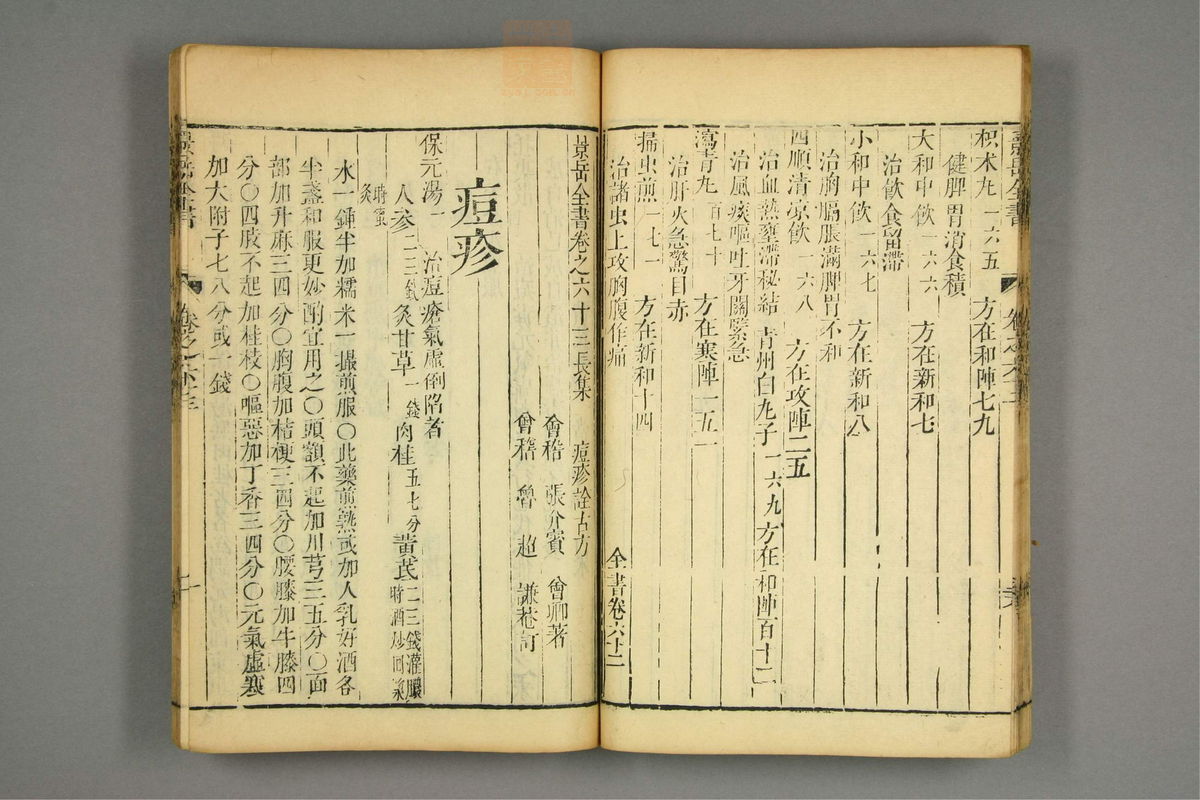 枳术丸一六五　方在和陣七九
健脾胃消食積
大和中飲一六六　方在新和七
治飲食留滯
小和中飲一六七　方在新和八
治胸膈脹滿脾胃不和
四順清涼飲一六八　方在攻陣二五
治血熱壅滯秘結　青州白丸子一六九　方在和陣百十二
治風痰嘔吐牙關緊急
瀉青丸百七十　方在寒陣一五一
治肝火急驚目赤
掃虫煎一七一　方在新和十四
治諸虫上攻胸腹作痛　全書卷六十二
景岳全書卷之六十三長集　痘疹詮古方
會稽　張介賓　會卿著
會稽　魯超　謙菴訂
痘疹
保元湯一　治痘瘡氣虛倒陷者
人參二三錢　炙甘草一錢　肉桂五七分　黃芪二三錢灌膿時酒炒回漿時蜜炙
水一鍾半加糯米一撮煎服〇此藥煎熟或加人乳好酒各
半盞和服更妙酌宜用之〇頭額不起加川芎三五分〇面
部加升麻三四分〇胸腹加桔梗三四分〇腰膝加牛膝四
分〇四肢不起加桂枝〇嘔惡加丁香三四分〇元氣虛寒
加大附子七八分或一錢
景岳全書　卷之六十三　一